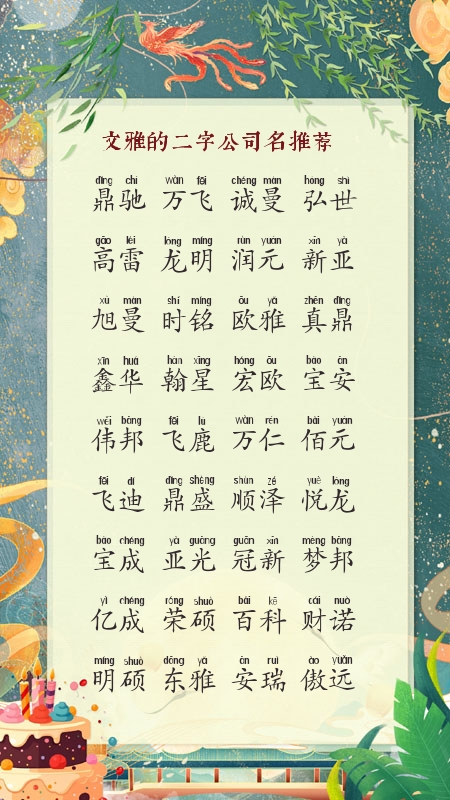 文雅的二字公司名推荐
dǐng chí wàn fēi chéng màn hóng shì
鼎驰 万飞 诚曼 弘世
gāo léi lóng míng rùn yuán xīn yà
高雷 龙明 润元 新亚
xù màn shí míng ōu yǎ zhēn dǐng
旭曼 时铭 欧雅 真鼎
xīn huá hàn xīng hóng ōu bǎo ān
鑫华 翰星 宏欧 宝安
wěi bāng fēi lù wàn rén bǎi yuán
伟邦 飞鹿 万仁 佰元
fēi dí dǐng shèng shùn zé yuè lóng
飞迪 鼎盛 顺泽 悦龙
bǎo chéng yà guāng guān xīn mèng bāng
宝成 亚光 冠新 梦邦
yì chéng róng shuò bǎi kē cái nuò
亿成 荣硕 百科 财诺
míng shuò dōng yǎ ān ruì ào yuǎn
明硕 东雅 安瑞 傲远